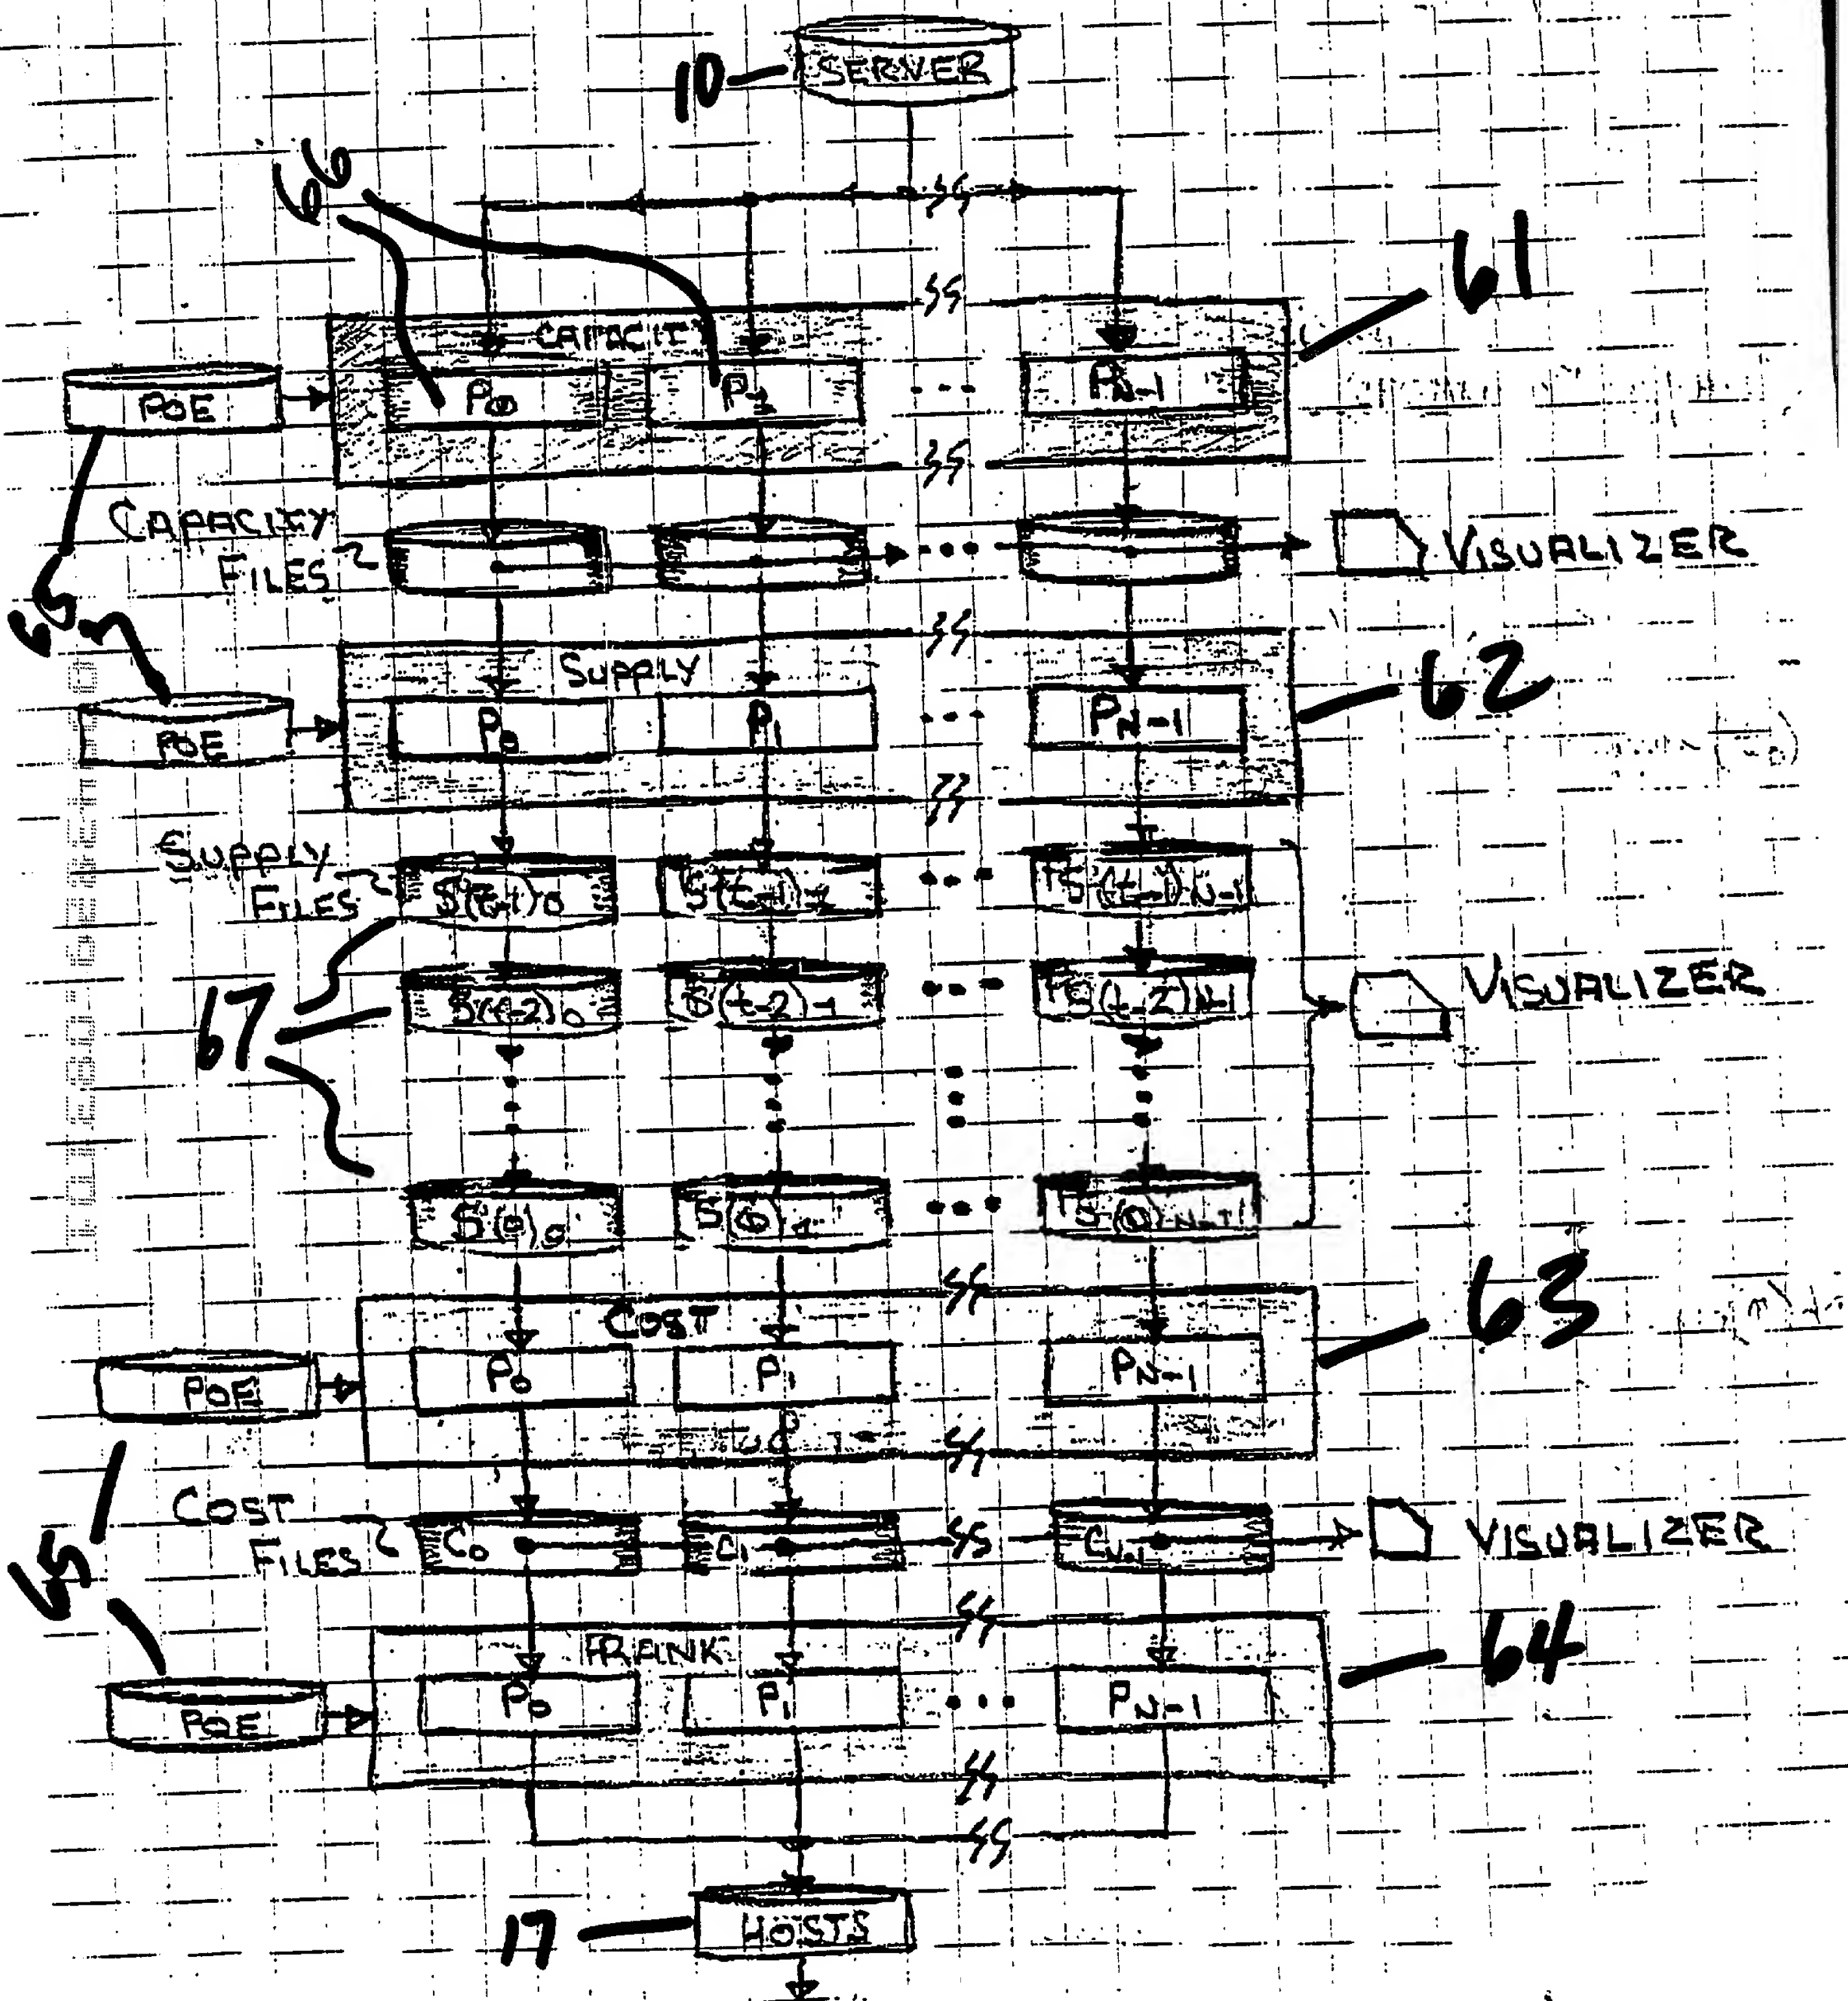 10 SERVER
66
61
CAPACITY
POE P0 P1 ... PN-1
CAPACITY
FILES
VISUALIZER
65
62
SUPPLY
POE P0 P1 ... PN-1
SUPPLY
FILES S(t-1)0 S(t-1)1 ... S(t-1)N-1
67 S(t-2)0 S(t-2)1 ... S(t-2)N-1
VISUALIZER
S(0)0 S(0)1 ... S(0)N-1
63
COST
POE P0 P1 PN-1
COST
FILES C0 C1 CN-1 VISUALIZER
65
64
RANK
POE P0 P1 ... PN-1
17 HOSTS